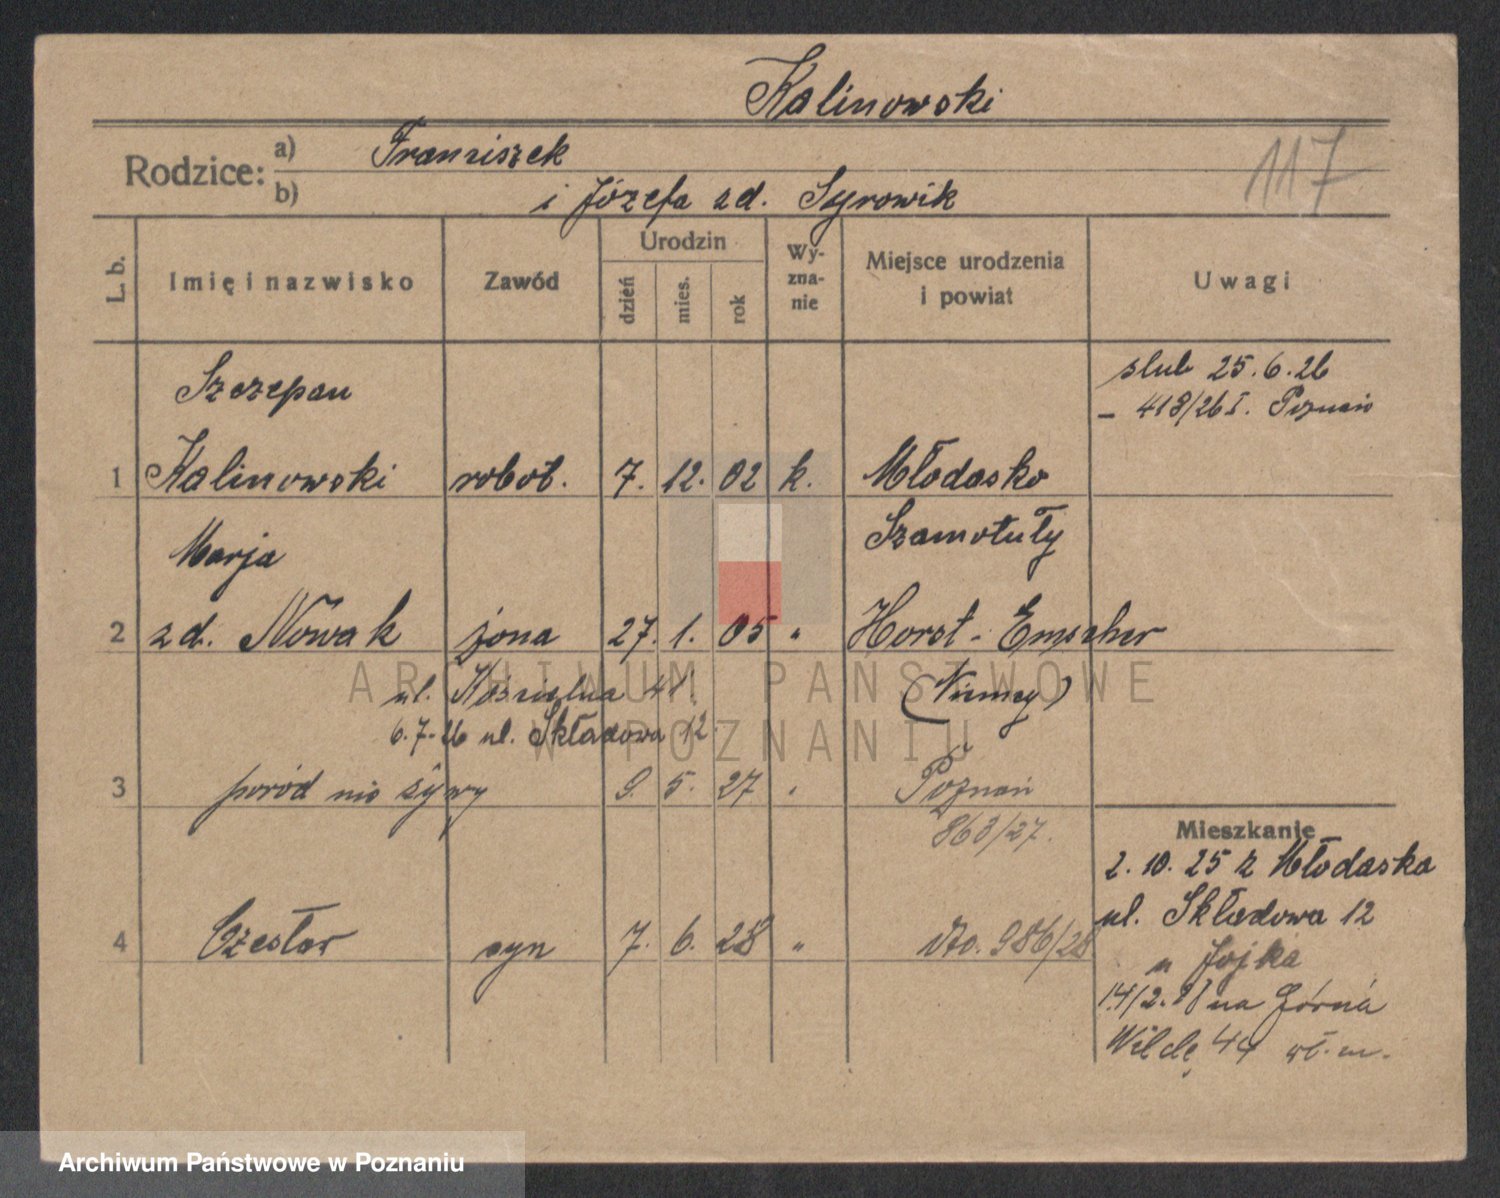 Kalinowski
117
Rodzice: a) Franciszek
b) i Józefa zd. Syrowik
L. b. Imię i nazwisko Zawód Urodzin dzień mies. rok Wyzna-nie Miejsce urodzenia i powiat Uwagi
Szczepan
ślub 25.6.26
– 418/26 I. Poznań
1 Kalinowski robot. 7. 12. 02 k. Młodasko
Marja Szamotuły
2 zd. Nowak żona 27. 1. 05 " Horst-Emscher
ul. Kościelna 41. (Niemcy)
6.7.26 ul. Składowa 12
3 poród nieżywy 9. 5. 27 " Poznań
863/27.
Mieszkanie
2. 10. 25 z Młodaska
4 Czesław syn 7. 6. 28 " dto. 986/28
ul. Składowa 12
u Jojka
14/2. na Górna
Wildę 44 wł. m.
ARCHIWUM PAŃSTWOWE
W POZNANIU
Archiwum Państwowe w Poznaniu